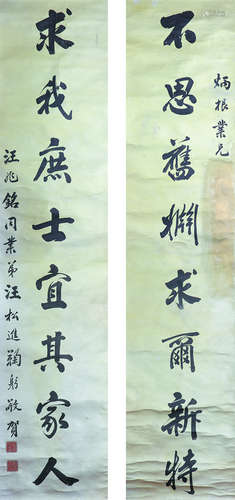 炳根業兄
不思舊婣求爾新特
求我庶士宜其家人
汪兆銘同業弟汪松進鞠躬敬賀